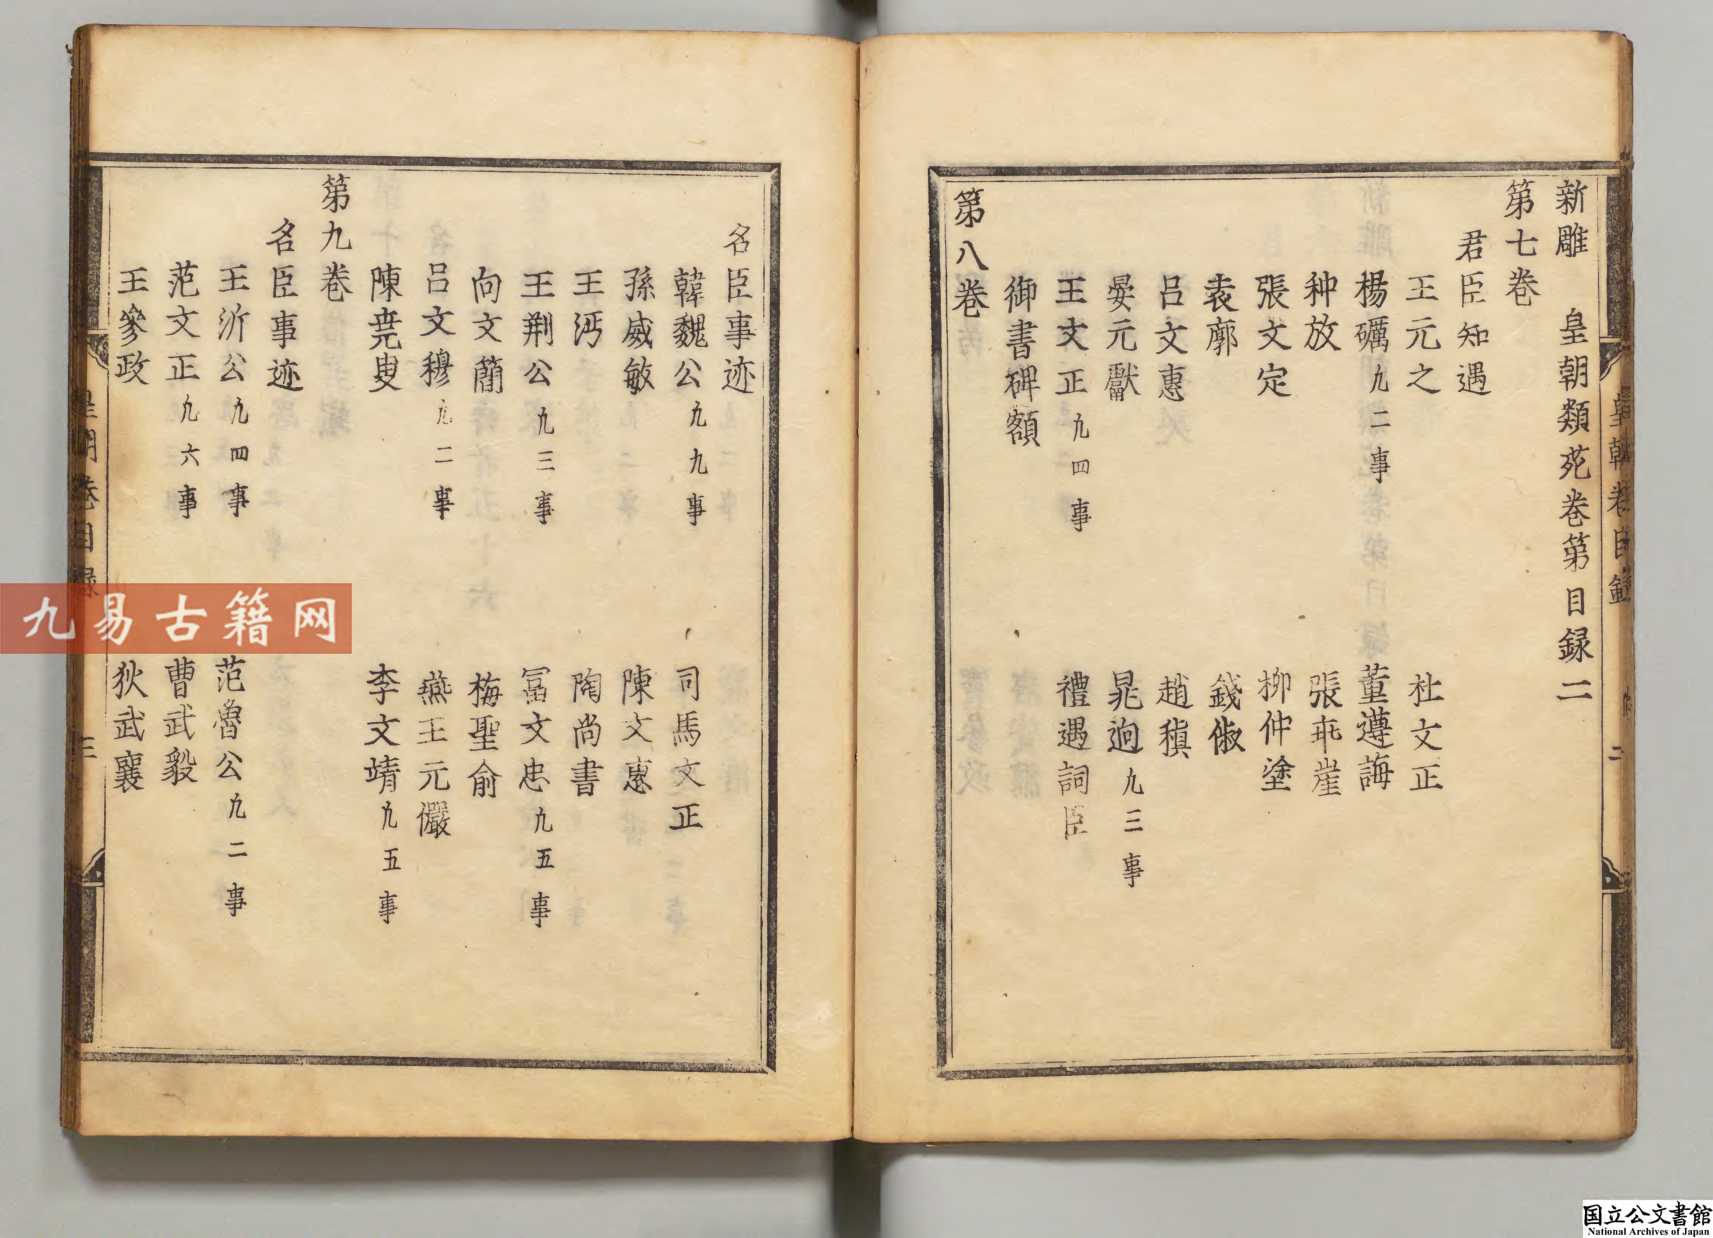 新雕　皇朝類苑卷第目録二
第七卷
君臣知遇
王元之　杜文正
楊礪凡二事　董遵誨
种放　張乖崖
張文定　柳仲塗
袁廓　錢俶
呂文惠　趙稹
晏元獻　晁迥凡三事
王文正凡四事　禮遇詞臣
御書碑額
第八卷
名臣事迹
韓魏公凡九事　司馬文正
孫威敏　陳文惠
王沔　陶尚書
王荆公凡三事　冨文忠凡五事
向文簡　梅聖俞
呂文穆凡二事　燕王元儼
陳堯叟　李文靖凡五事
第九卷
名臣事迹
王沂公凡四事　范魯公凡二事
范文正凡六事　曹武毅
王參政　狄武襄
皇朝卷目録　二
皇朝卷目録　三
九易古籍网
国立公文書館
National Archives of Japan